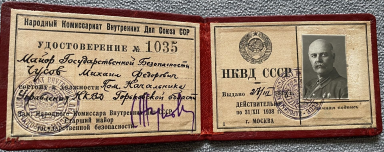 Народный Комиссариат Внутренних Дел Союза ССР
УДОСТОВЕРЕНИЕ № 1035
Майор Государственной Безопасности
Чусов Михаил Федорович
состоит в должности Пом. Начальника
Управления НКВД Горьковской области
Зам. Народного Комиссара Внутренних
старший майор
государственной безопасности
НКВД СССР
Выдано
ДЕЙСТВИТЕЛЬНО
по 31 XII 1938 г.
г. МОСКВА